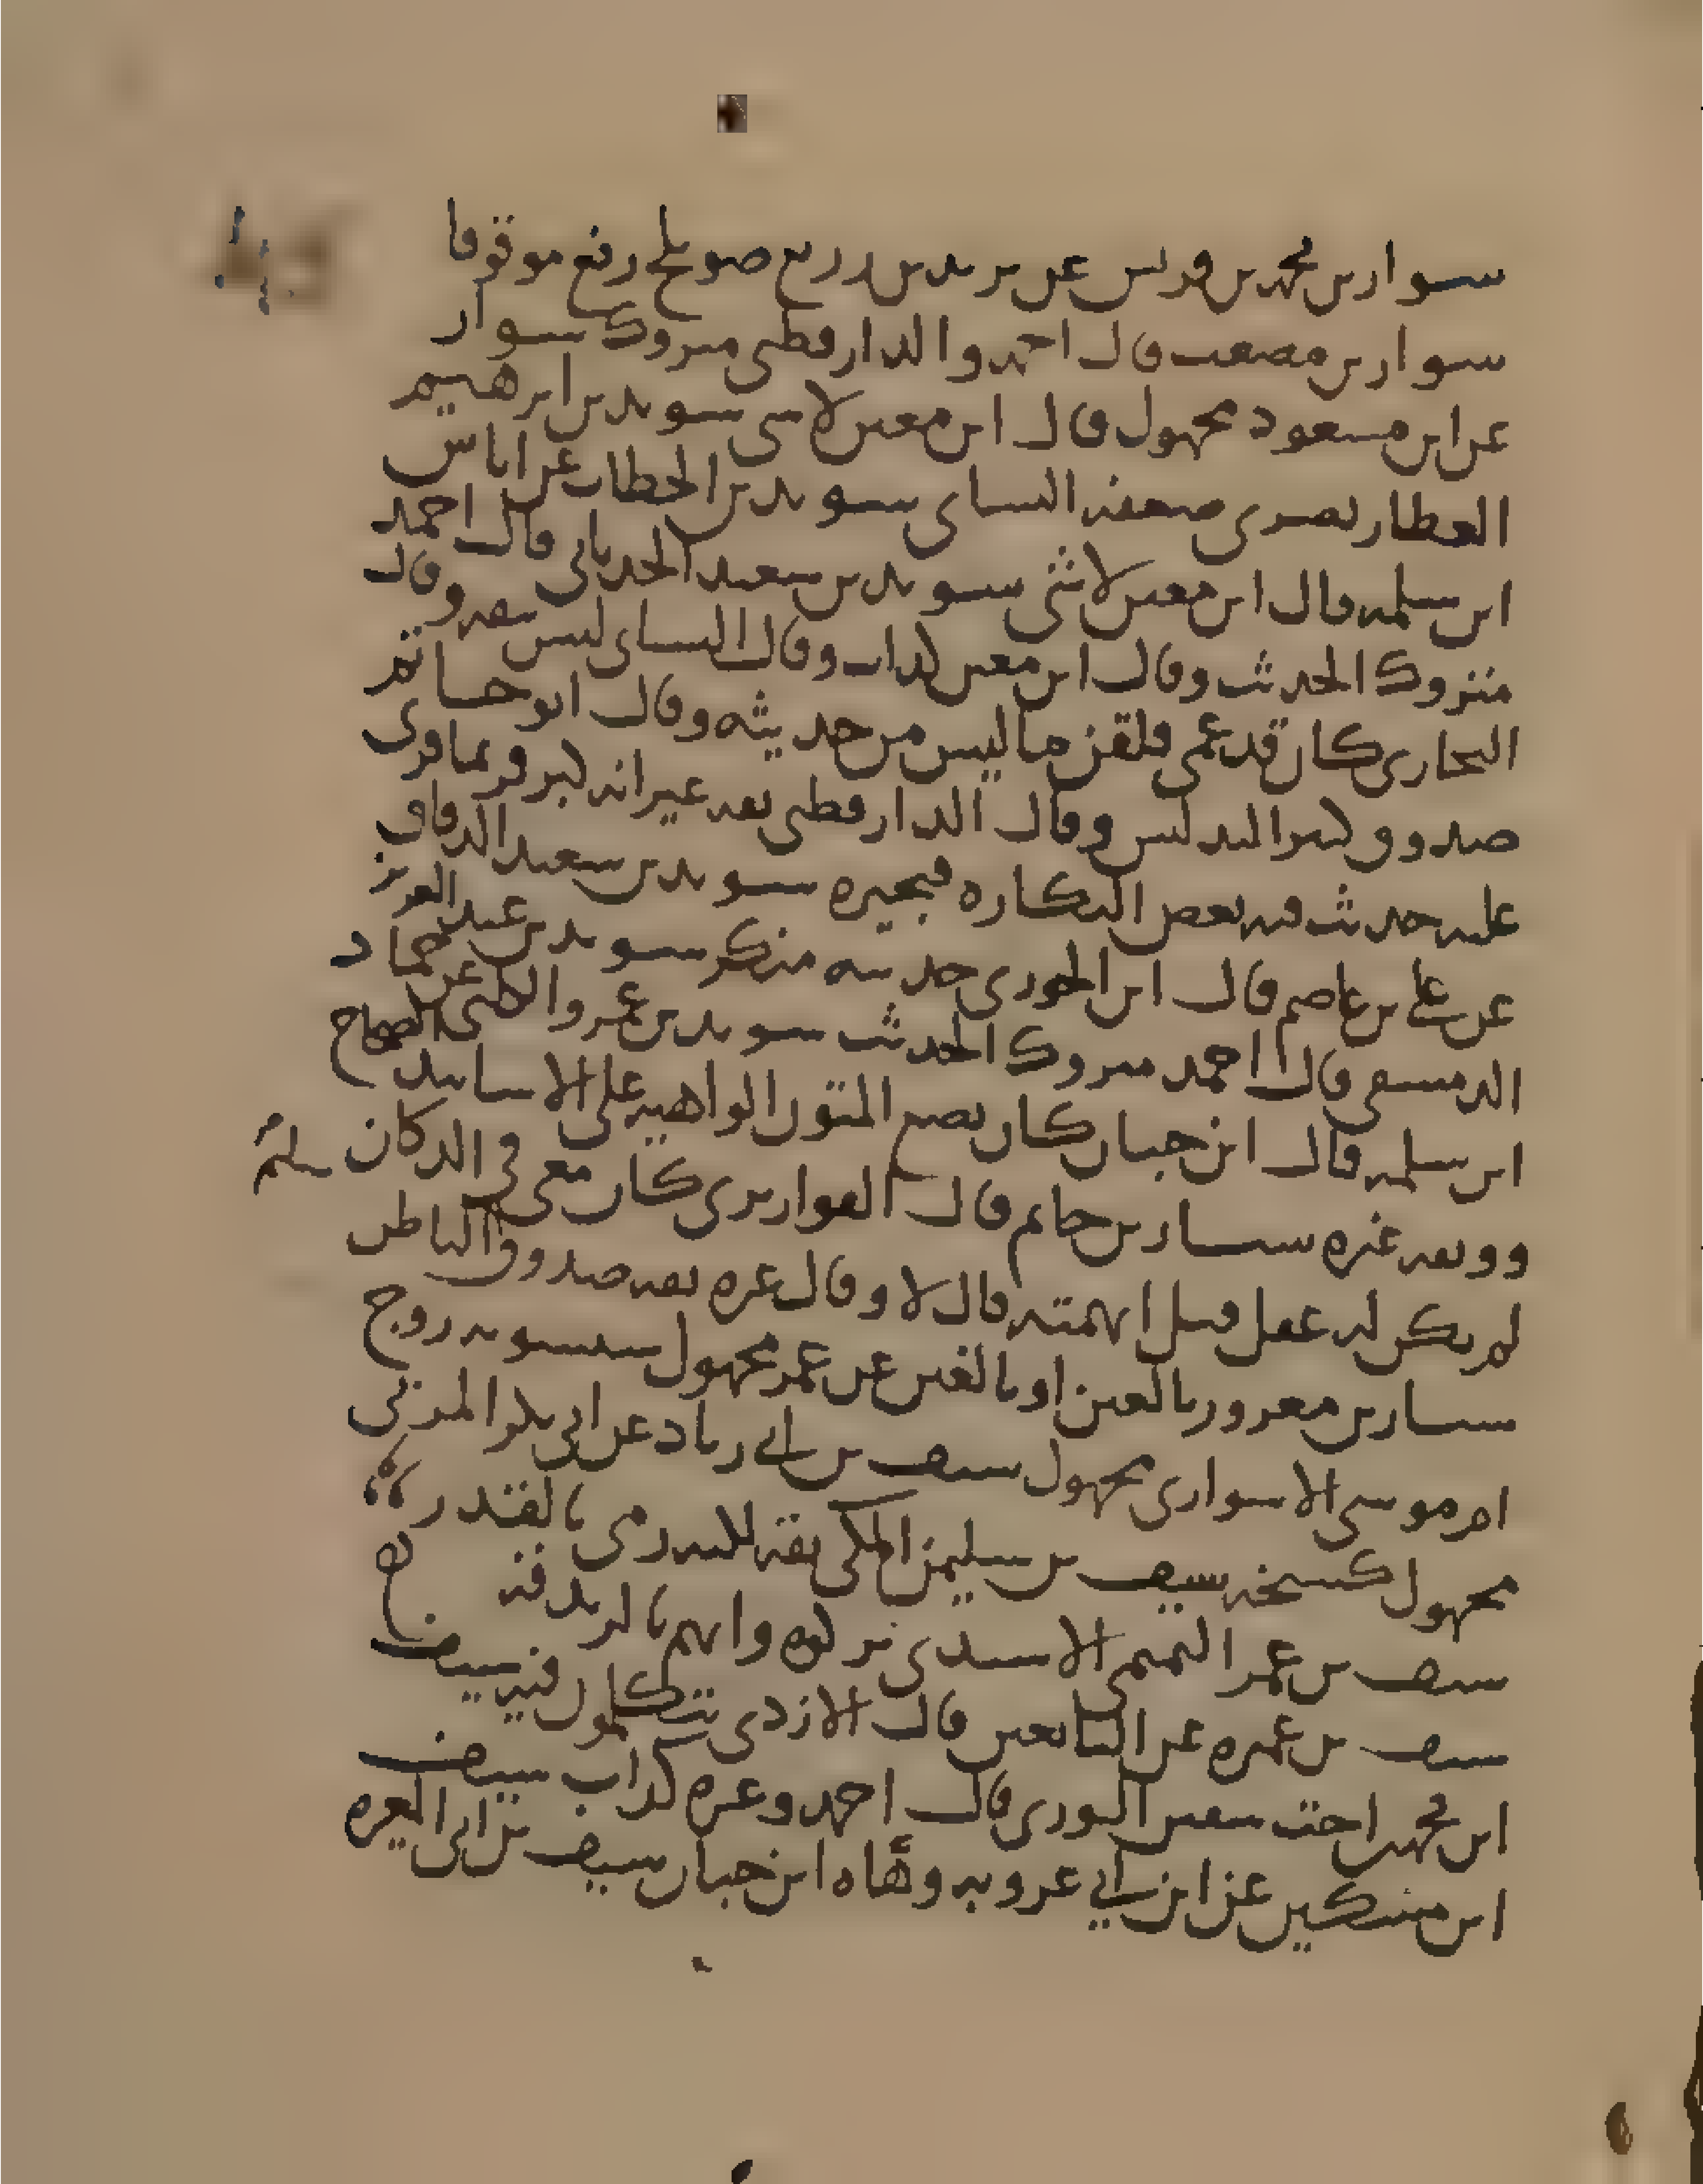 سوار بن محمد بن قريس عن يزيد بن زريع صويلح رفع موقوفا
سوار بن مصعب قال احمد والدارقطني متروك سوار
عن ابن مسعود مجهول قال ابن معين لا شي سويد بن ابرهيم
العطار بصري ضعفه النساي سويد بن الخطاب عن اياس
ابن سلمه قال ابن معين لا شي سويد بن سعيد الحدثاني قال احمد
متروك الحديث وقال ابن معين كذاب وقال النساي ليس بثقه وقال
البخاري كان قد عمي فلقن ما ليس من حديثه وقال ابو حاتم
صدوق كثير التدليس وقال الدارقطني ثقه غير انه كبر فربما قري
عليه حديث فيه بعض النكاره فيجيزه سويد بن سعيد الدقاق
عن علي بن عاصم قال ابن الجوزي حديثه منكر سويد بن عبد العزيز
الدمشقي قال احمد متروك الحديث سويد بن عمرو الكلبي عن حماد
ابن سلمه قال ابن حبان كان يضع المتون الواهيه على الاسانيد الصحاح
ووثقه غيره سيار بن حاتم قال القواريري كان معي في الدكان
لم يكن له عقل قيل اتهمته قال لا وقال غيره ثقه صدوق الباطن
سيار بن معرور بالعين او بالغين عن عمر مجهول سيسويه زوج
ام موسى الاسواري مجهول سيف بن ابي زياد عن ابي بكر المزني
مجهول كشيخه سيف بن سليمن المكي ثقه لكنه رمي بالقدر
سيف بن عمر التميمي الاسدي تركوه واتهم بالزندقه
سيف بن عميره عن التابعين قال الازدي يتكلمون فيه سيف
ابن محمد اخت سفين الثوري قال احمد وغيره كذاب سيف
ابن مسكين عن ابن ابي عروبه وهاه ابن حبان سيف بن ابي المغيره